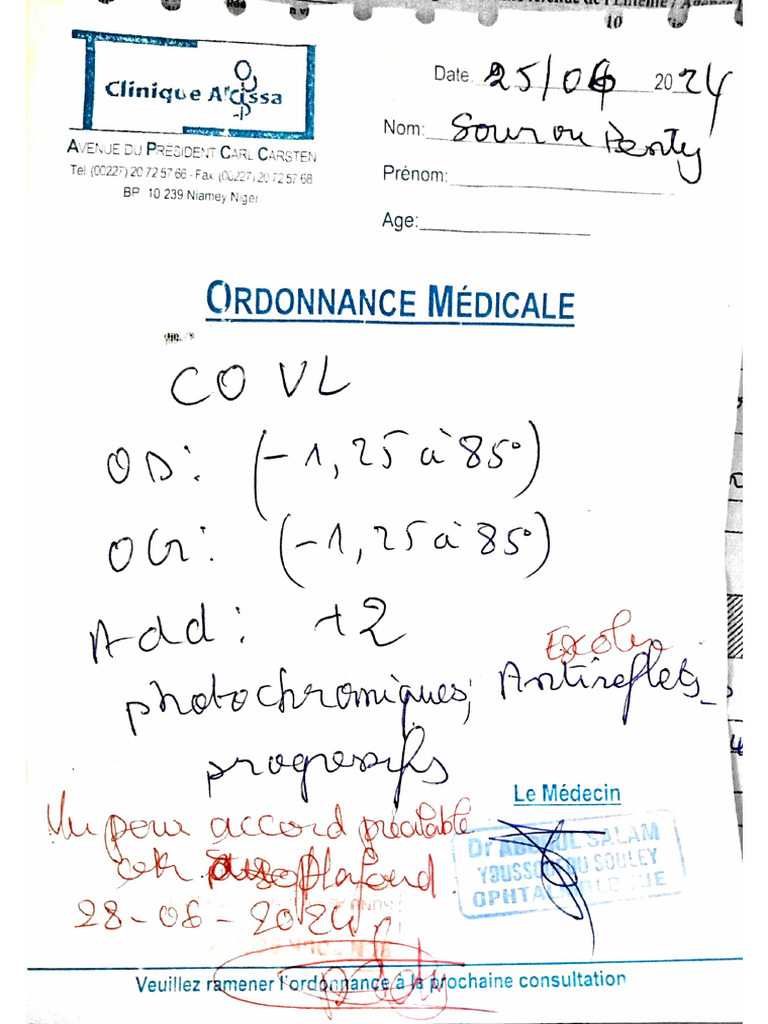 10
Clinique Aïssa
AVENUE DU PRÉSIDENT CARL CARSTEN
Tel (00227) 20 72 57 66 - Fax (00227) 20 72 57 68
BP 10 239 Niamey Niger
Date. 25/06 2024
Nom: Sourou
Prénom:
Age:
ORDONNANCE MÉDICALE
CO VL
OD: (-1,25 à 85°)
OG: (-1,25 à 85°)
Add: +2
photochromiques; Antireflets
progressifs
Le Médecin
Vu pour accord préalable
plafond.
28-06-2024
Dr ABDOUL SALAM
YOUSSOUFOU SOULEY
OPHTALMOLOGUE
Veuillez ramener l'ordonnance à la prochaine consultation